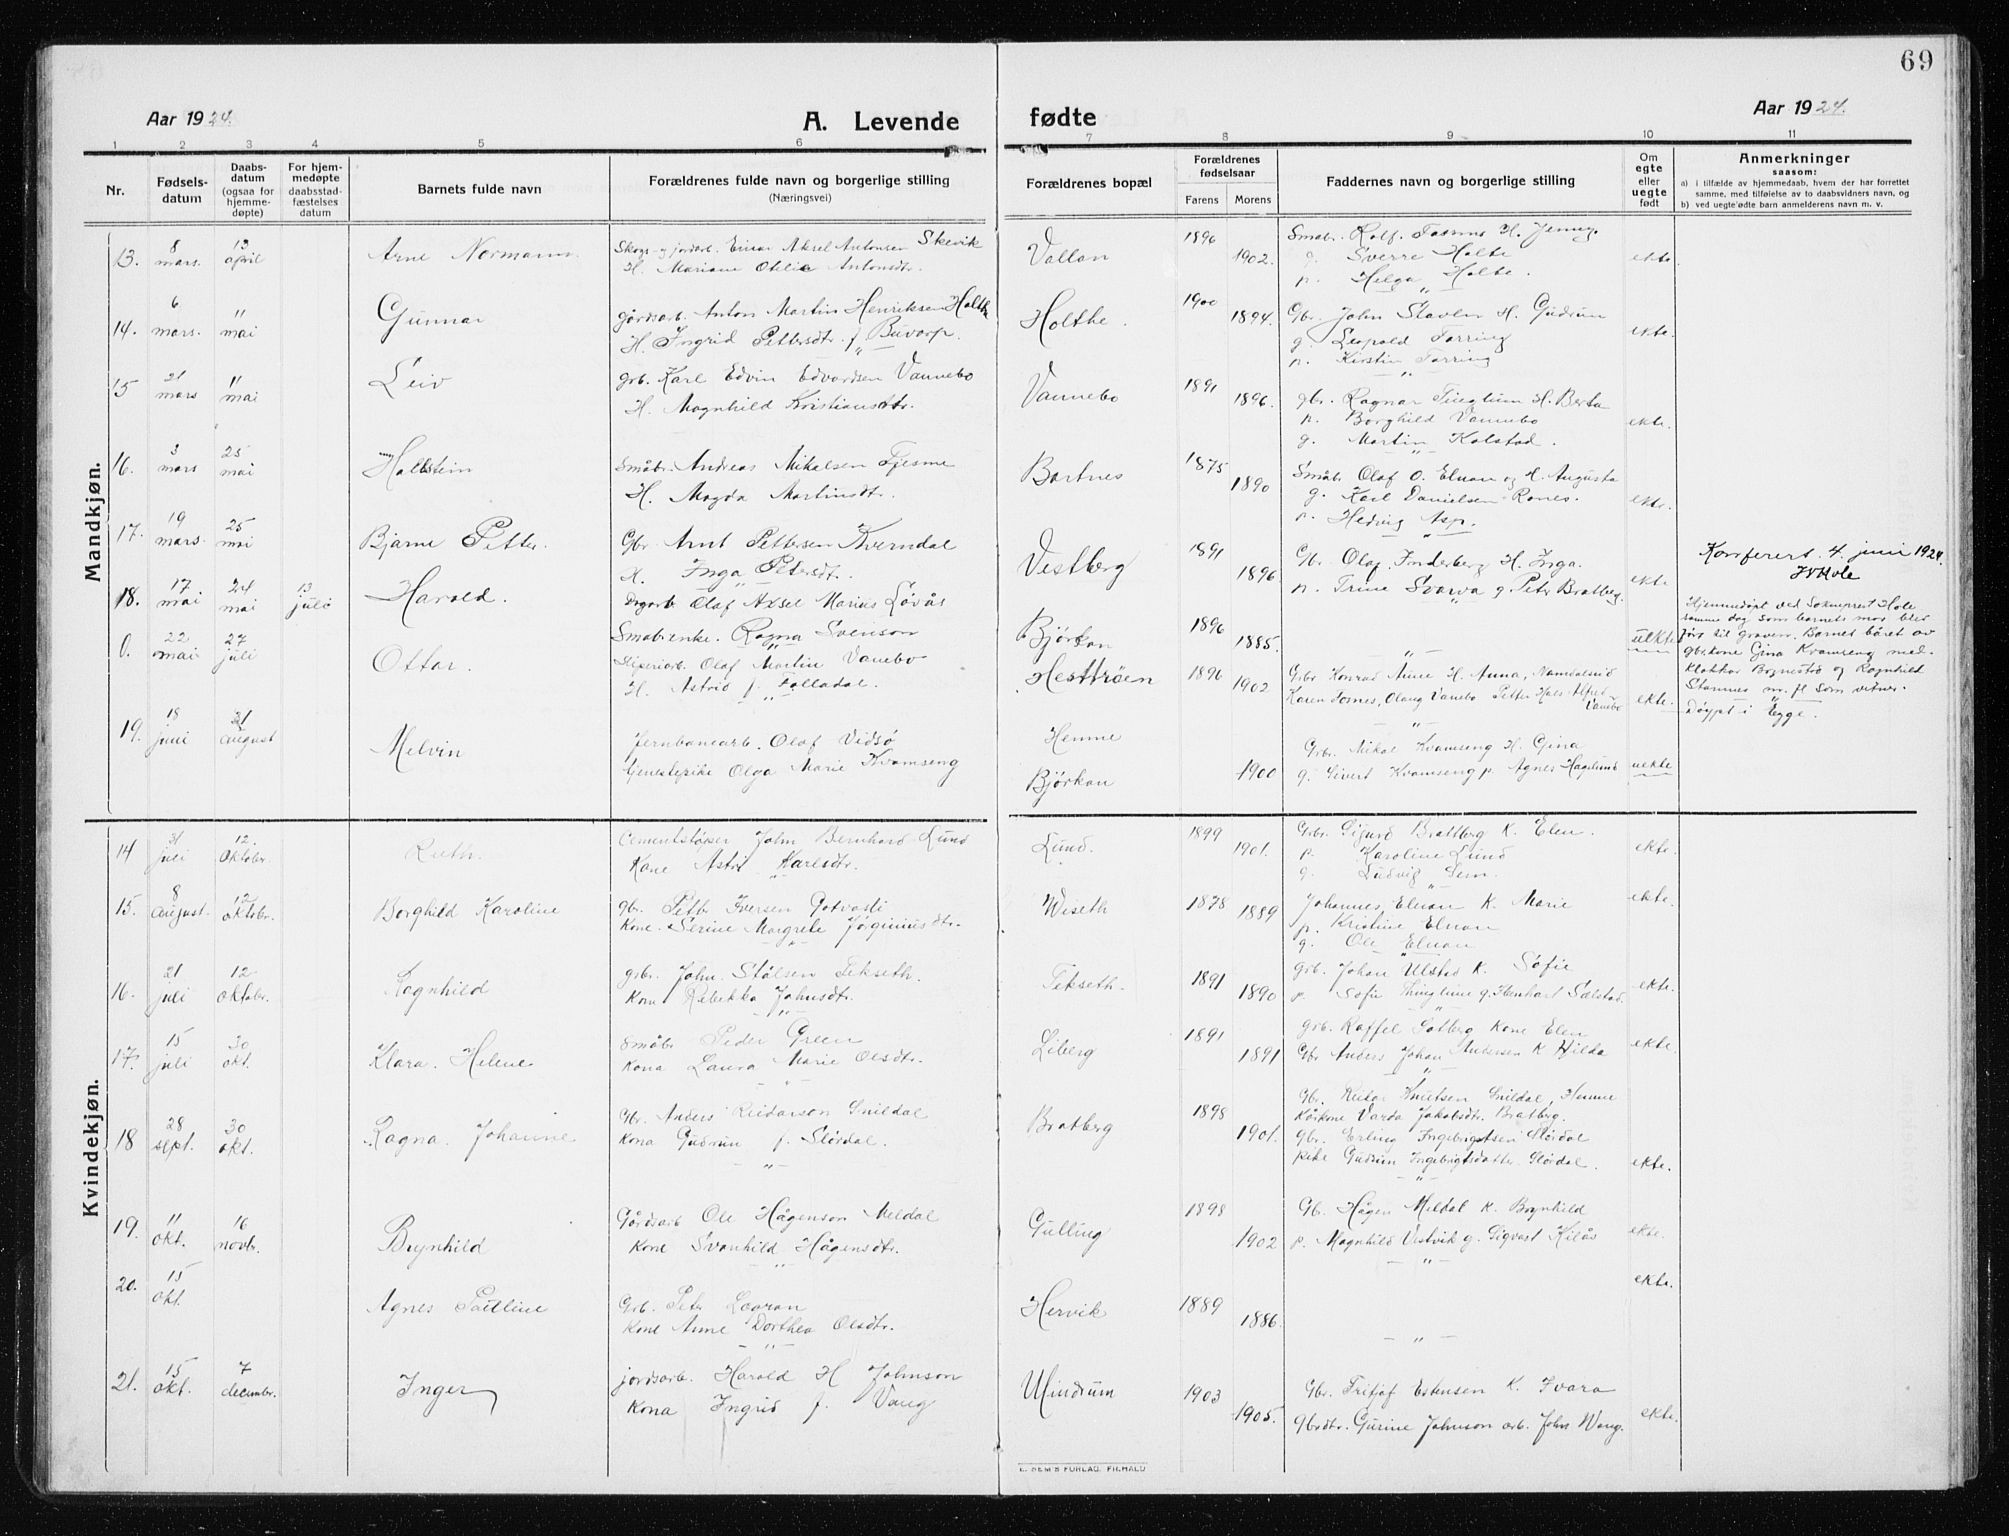 69
Aar 1924.
A. Levende
fødte
Aar 1924.
1 2 3 4 5 6 7 8 9 10 11
Nr.
Fødsels-
datum
Daabs-
datum
(ogsaa for
hjemme-
døpte)
For hjem-
medøpte
daabsstad-
fæstelses
datum
Barnets fulde navn
Forældrenes fulde navn og borgerlige stilling
(Næringsvei)
Forældrenes bopæl
Forældrenes
fødselsaar
Farens Morens
Faddernes navn og borgerlige stilling
Om
egte
eller
uegte
født
Anmerkninger
saasom:
a) i tilfælde av hjemmedaab, hvem der har forrettet
samme, med tilføielse av to daabsvidners navn, og
b) ved uegte fødte barn anmelderens navn m. v.
Mandkjøn.
13. 8 mars. 13 april Arne Normann.
Skogs- og jordarb. Einar Aksel Antonsen Skevik
H. Mariane Otelie Antonsdtr.
Vollan 1896 1902.
Smabr. Rolf H. Jenny.
g. Sverre Holte
p. Helga Holte.
ekte
14. 6 mars. 11 mai Gunnar
gårdsarb. Anton Martin Henriksen Holthe
H. Ingrid Pettersdtr. f. Buvarp.
Holthe. 1900 1894.
Gbr. John Staven H. Gudrun
g. Leopold Tørring
p. Kirstin Tørring
ekte.
15 21 mars 11 mai Leiv
grb. Karl Edvin Edvardsen Vannebo
H. Magnhild Kristiansdtr.
Vannebo 1891 1896.
gbr. Ragnar Tinglum H. Berta
p. Borghild Vannebo
g. Martin Kolstad.
ekte.
16. 3 mars 25 mai Hallstein
Småbr. Andreas Mikalsen Tjesme
H. Magda Martinsdtr.
Bartnes 1875 1890
Småb. Olaf O. Elnan og H. Augusta
g. Karl Danielsen Rones.
p. Hedvig Asp.
ekte.
17. 19 mars. 25 mai Bjarne Petter.
Gbr. Arnt Pettersen Kverndal
H. Inga Petersdtr.
Vestberg 1891 1896.
Gbr. Olaf Inderberg H. Inga.
p. Trine Svarva g. Peter Bratberg.
ekte
Konferert 4. juni 1924.
18. 17 mai 24 mai 13 juli Harald.
Dagarb. Olaf Aksel Marius Løvås
Småbr.enke. Ragna Svenson
Bjørkan 1896 1885.
uekte
Hjemmedøpt ved Sokneprest Hole
samme dag som barnets mor blev
ført til graven. Barnet båret av
gbr.kone Gina Kvamseng med
Klokker Bognestø og Ragnhild
Stamnes m. fl som vitner.
0. 22 mai 27 juli Ottar.
Sliperiarb. Olaf Martin Vanebo
H. Astrid f. Folladal.
Hesttrøen 1896 1902
Grbr Konrad Anne H. Anna, Namdalseid
Karen Fornes, Olaug Vanebo Petter Hals Alfred Vanebo
ekte.
Døypt i Egge.
19. 18 juni 31 august Melvin
Jernbanearb. Olaf Vidsø
tjenestepike Olga Marie Kvamseng
Hemne
Bjørkan 1900
Grb. Mikal Kvamseng H. Gina
g. Sivert Kvamseng p. Agnes Hagelund
uekte
Kvindekjøn.
14 31 juli 12. Oktober. Ruth.
Cementstøper John Bernhard Lund
Kone Astri Karlsdtr.
Lund. 1899 1901.
Grbr. Sigurd Brattberg K. Elen.
p. Karoline Lund
g. Ludvig Sem.
ekte.
15. 8 August. 12 oktobr. Borghild Karoline
gbr. Petter Iversen Gotvasli
Kone. Serine Margrete Jørginiusdtr.
Wiseth 1878 1889
Johannes Elnan K. Marie
p. Kristine Elnan
g. Ole Elnan
ekte.
16. 21 juli 12 oktobr. Ragnhild
grbr. John Stålsen Tekseth.
Kone Rebekka Johnsdtr.
Tekseth. 1891 1890
grb. Johan Ulstad K. Sofie
p. Sofie Thinglum g. Henhart Sælstad.
ekte.
17. 15 juli 30 okt. Klara. Helene
Småbr Peder Green
Kona Laura Marie Olsdtr.
Liberg 1891 1891
grb. Raffel Solberg Kone Elen
Gbr Anders Johan Andersen K Hilda
ekte.
18 28 sept. 30 okt. Ragna. Johanne
Gbr. Anders Reidarson Snildal
Kona Gudrun f. Slørdal.
Bratberg 1898 1901.
Gbr. Reidar Knutsen Snildal, Hemne
Kårkone Varda Jakobsdtr. Bratberg.
gbr. Erling Ingebrigtsen Slørdal
Pike Gudrun Ingebrigtsdatter Slørdal.
ekte.
19. 11 okt. 16 novbr. Brynhild
Gårdsarb Ole Hågenson Meldal
Kone Svanhild Hågensdtr.
Gulling 1898 1902
Gb. Hågen Mildal K. Brynhild
p. Magnhild Vestvik g. Sigvart Kilås
ekte.
20. 15 okt. Agnes Pauline
Grb. Peter Lorran
Kone Anne Dorthea Olsdtr.
Hervik 1889 1886.
ekte.
21. 15 okt. 7 decembr. Inger
jordsarb. Harald H Johnson
Kona Ingrid f. Vang
Mindrum 1903 1905.
Gbr. Fritjof Estensen K. Ivara
Gbrdtr. Gurine Johnson arb. John Wang.
ekte.
E. SEM'S FORLAG, FR.HALD